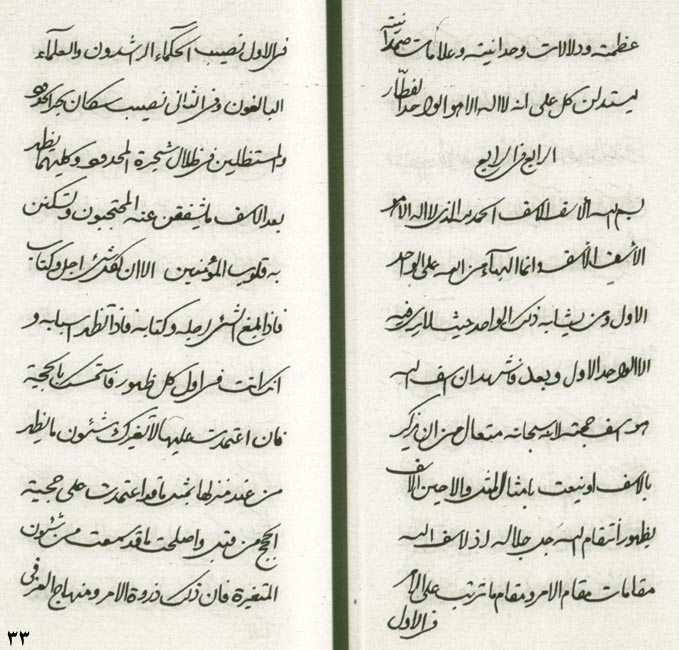 عظمته ودلالات وحدانيته وعلامات صمدانيته
ليستدلن كل على انه لا اله الا هو الواحد الفطار
الرابع في الرابع
بسم الله الاسف الاسف الحمد لله الذي لا اله الا هو
الاسف الاسف وانما البهاء من الله على الواحد
الاول ومن يشابه ذلك الواحد حيث لا يرى فيه
الا الواحد الاول وبعد فاشهد ان اسف الله
هو اسف حجته لانه سبحانه متعال من ان يذكر
بالاسف او ينعت بامثال المثل والا حين الاسف
يظهر انتقام الله جل جلاله اذ لاسف الله
مقامات مقام الامر ومقام ما ترتب على الامر
في الاول
في الاول نصيب الحكماء الراشدون والعلماء
البالغون وفي الثاني نصيب سكان بحر الحدود
والمستظلين في ظلال شجرة المحدود وكليهما يظهر
بعد الاسف ما يشفقن عنه المحتجبون وتسكنن
به قلوب المؤمنين الا ان لكل شيء اجل وكتاب
فاذا بلغ الشيء اجله وكتابه فاذا تظهر اسبابه و
انك انت في اول كل ظهور فاستمسك بالحجية
فان اعتمدت عليها لا تغيرك شئون ما يظهر
من عند منزلها بمثل ما قد اعتمدت على حجية
الحجج من قبل واصلحت ما قد سمعت من شئون
المتغيرة فان ذلك ذروة الامر ومنهاج العز في
٣٣